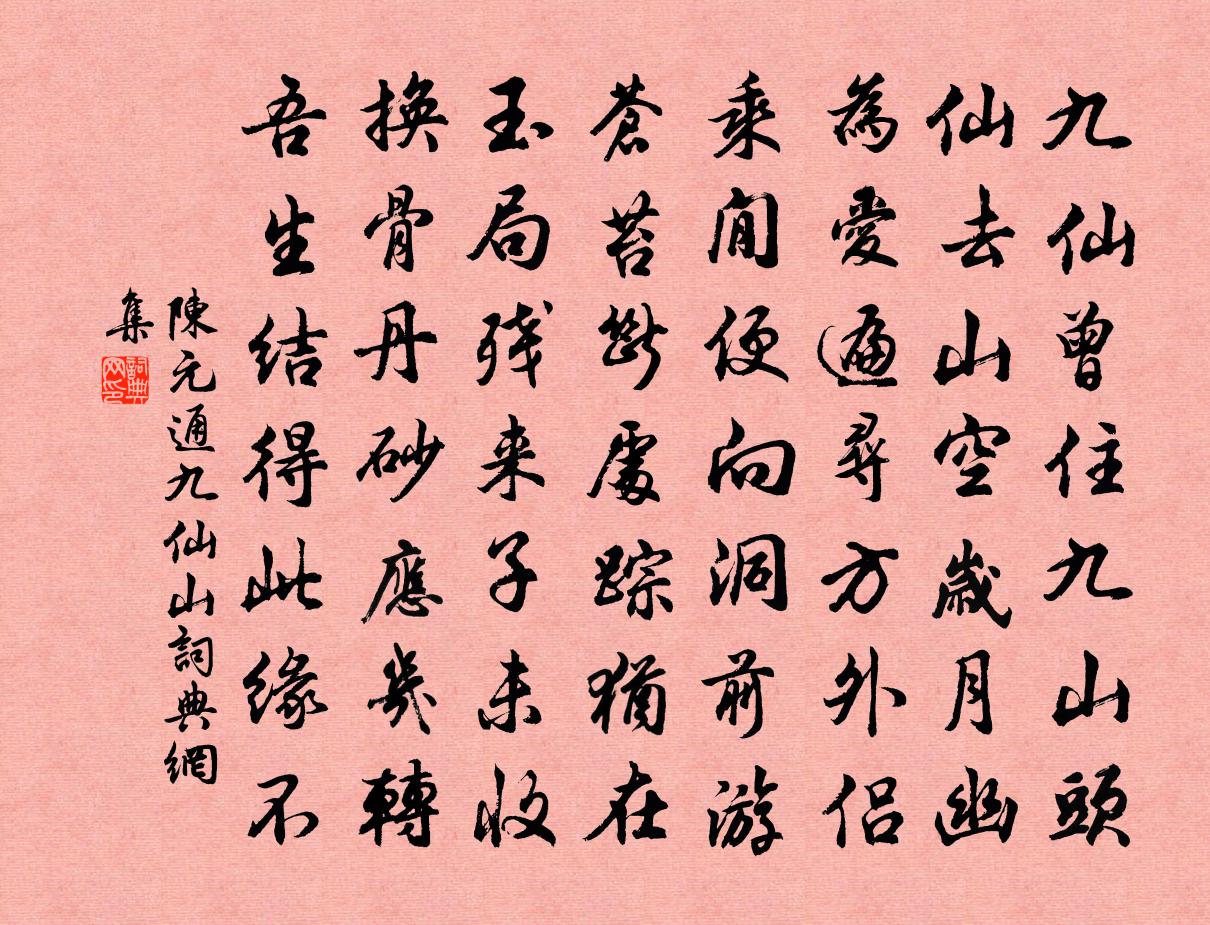 九仙曾住九山頭
仙去山空歲月幽
為愛遍尋方外侣
乘閒便向洞前游
蒼苔斷處踪猶在
玉局殘来子未收
換骨丹砂應幾轉
吾生结得此緣不
陳元通九仙山詞典網
集
詞典網印